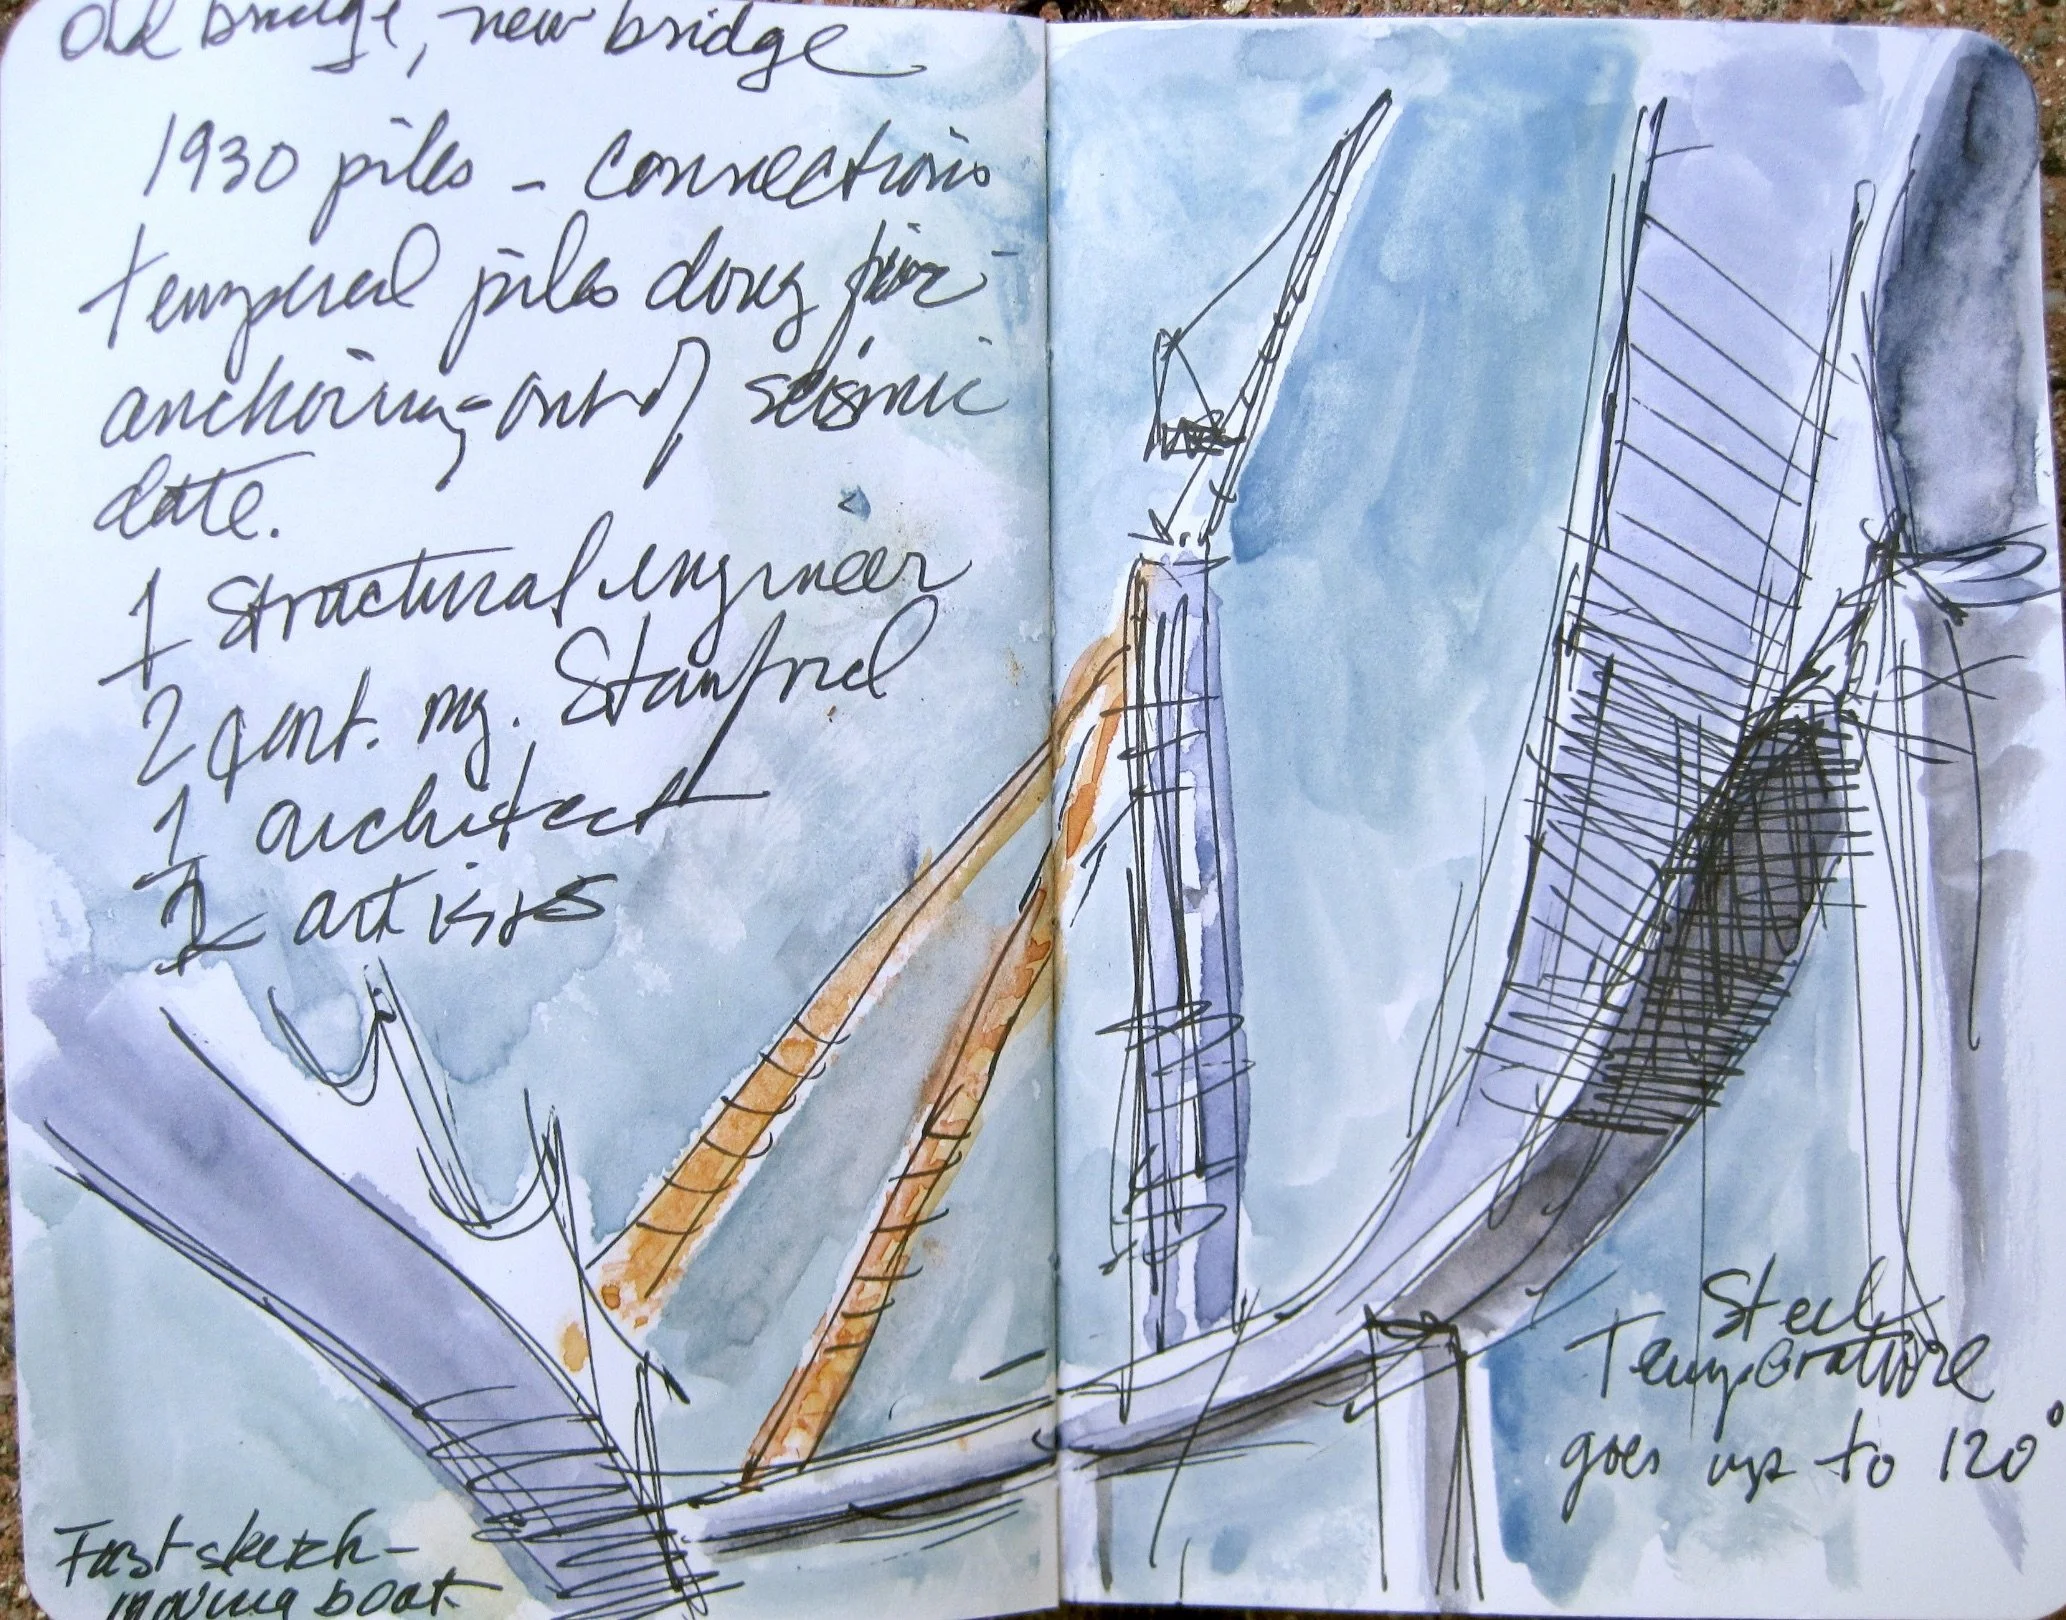 Old bridge, new bridge
1930 piles - connections
temperal piles dong
anchoring - out of seismic
date.
1 structural engineer
2 mg. Stanford
1 architect
2 artists
Fast sketch -
moving boat
Steel
Temperature
goes up to 120°